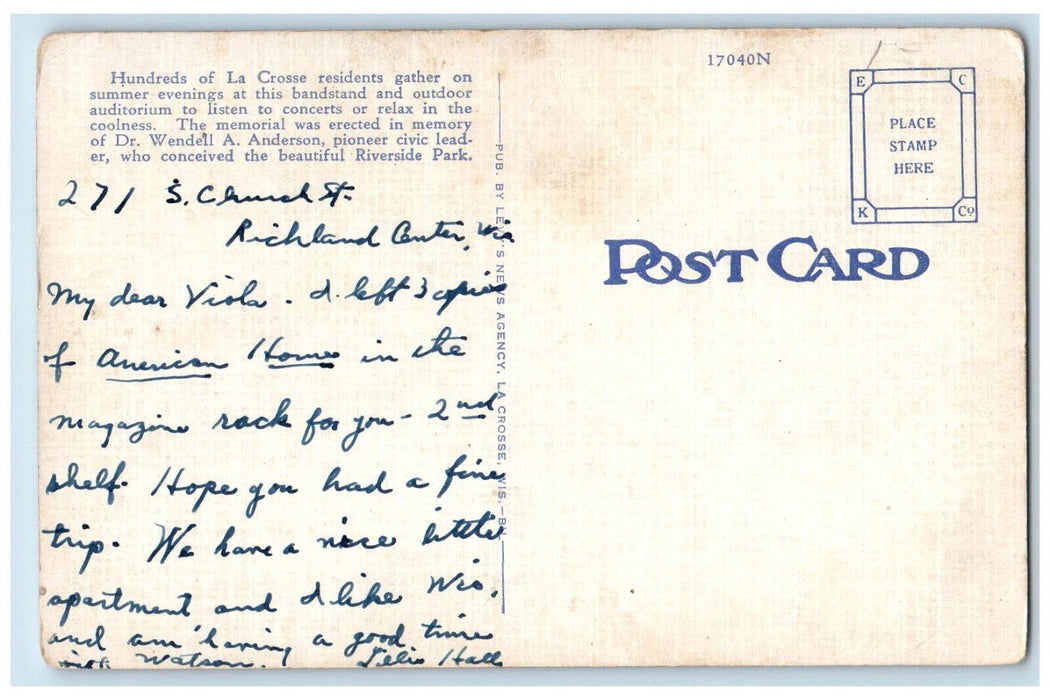 Hundreds of La Crosse residents gather on
summer evenings at this bandstand and outdoor
auditorium to listen to concerts or relax in the
coolness. The memorial was erected in memory
of Dr. Wendell A. Anderson, pioneer civic lead-
er, who conceived the beautiful Riverside Park.
271 S. Church St.
Richland Center, Wis
My dear Viola - I left 3 copies
of American Home in the
magazine rack for you - 2nd
shelf. Hope you had a fine
trip. We have a nice little
apartment and I like Wis.
and am having a good time
with Watson. Hall
PUB. BY NEWS AGENCY, LA CROSSE, WIS.
17040N
E C
PLACE
STAMP
HERE
K Co
POST CARD